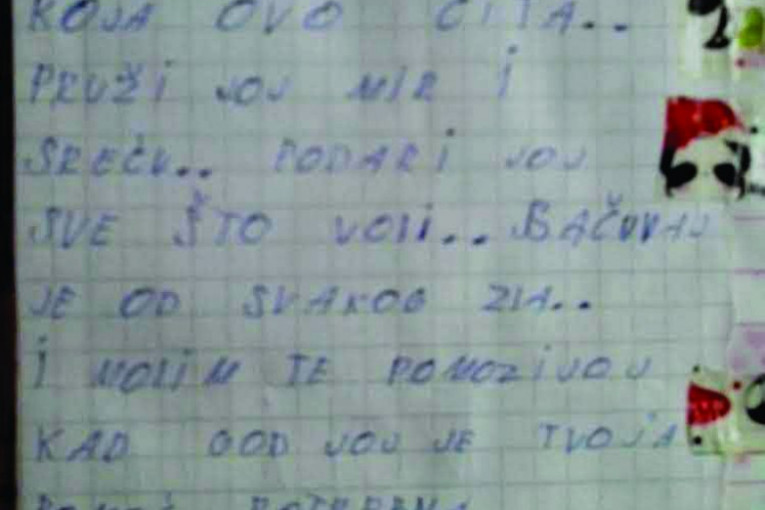 KOJA OVO ČITA..
PRUŽI JOJ MIR I
SREĆU.. PODARI JOJ
SVE ŠTO VOLI.. SAČUVAJ
JE OD SVAKOG ZLA..
I MOLIM TE POMOZI JOJ
KAD GOD JOJ JE TVOJA
POMOĆ POTREBNA